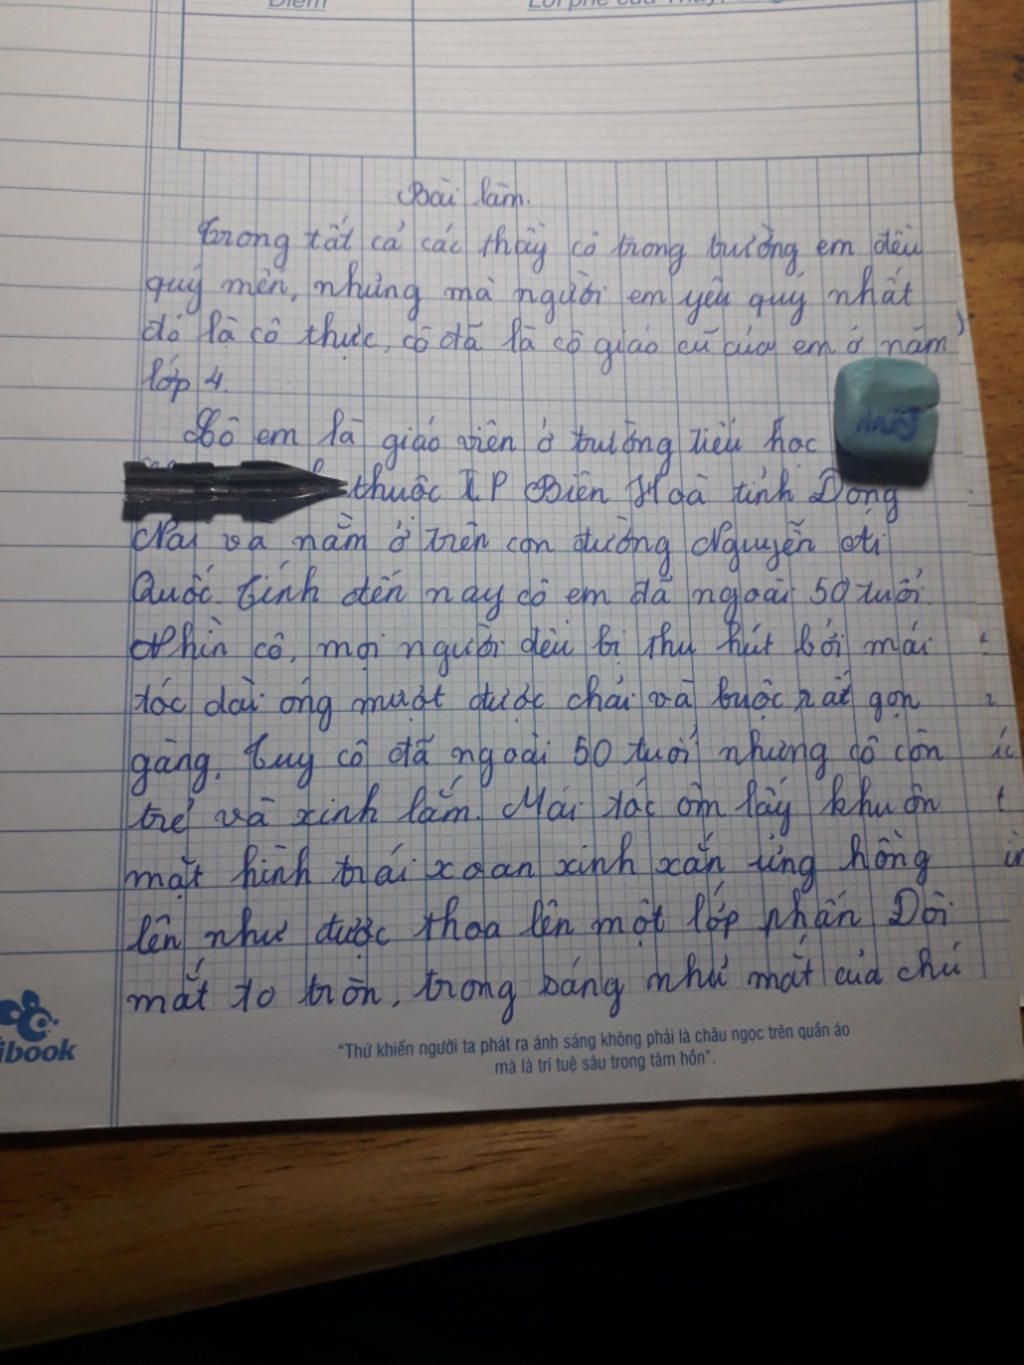 Điểm
Bài làm.
Trong tất cả các thầy cô trong trường em đều
quý mến, nhưng mà người em yêu quý nhất
đó là cô thực, cô đã là cô giáo cũ của em ở năm
lớp 4.
Cô em là giáo viên ở trường tiểu học
thuộc TP Biên Hoà tỉnh Đồng
Nai và nằm ở trên con đường Nguyễn Ái
Quốc. Tính đến nay cô em đã ngoài 50 tuổi.
Nhìn cô, mọi người đều bị thu hút bởi mái
tóc dài óng mượt được chải và buộc rất gọn
gàng. Tuy cô đã ngoài 50 tuổi nhưng cô còn
trẻ và xinh lắm. Mái tóc ôm lấy khuôn
mặt hình trái xoan xinh xắn ửng hồng
lên như được thoa lên một lớp phấn Đôi
mắt to tròn, trong sáng như mắt của chú
ibook
"Thứ khiến người ta phát ra ánh sáng không phải là châu ngọc trên quần áo
mà là trí tuệ sâu trong tâm hồn".